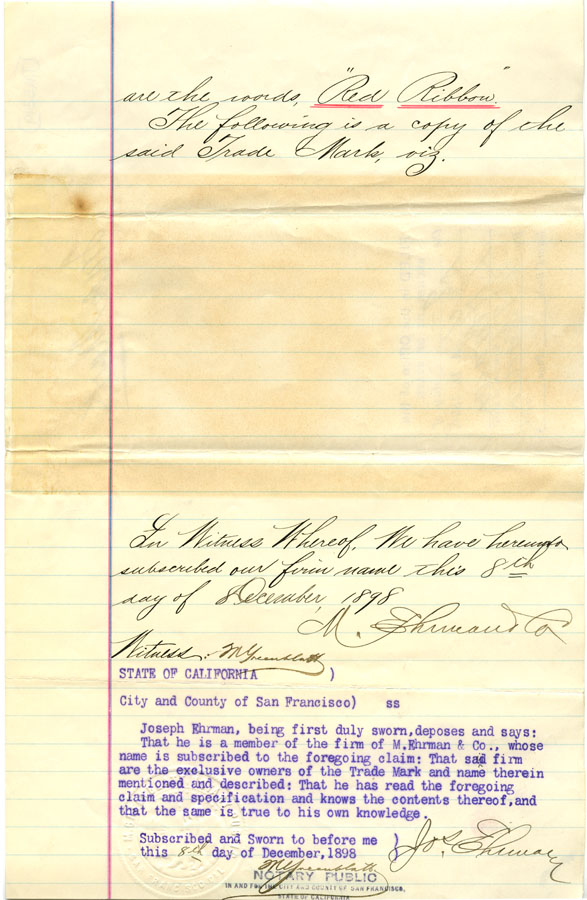 are the words, "Red Ribbon".
The following is a copy of the
said Trade Mark, viz.
In Witness Whereof, We have hereunto
subscribed our firm name this 8th
day of December, 1898
M. Ehrman & Co
Witness:
STATE OF CALIFORNIA )
City and County of San Francisco) ss
Joseph Ehrman, being first duly sworn,deposes and says:
That he is a member of the firm of M.Ehrman & Co., whose
name is subscribed to the foregoing claim: That said firm
are the exclusive owners of the Trade Mark and name therein
mentioned and described: That he has read the foregoing
claim and specification and knows the contents thereof,and
that the same is true to his own knowledge.
Subscribed and Sworn to before me )
this 8th day of December,1898 )
Jos. Ehrman
NOTARY PUBLIC
IN AND FOR THE CITY AND COUNTY OF SAN FRANCISCO,
STATE OF CALIFORNIA